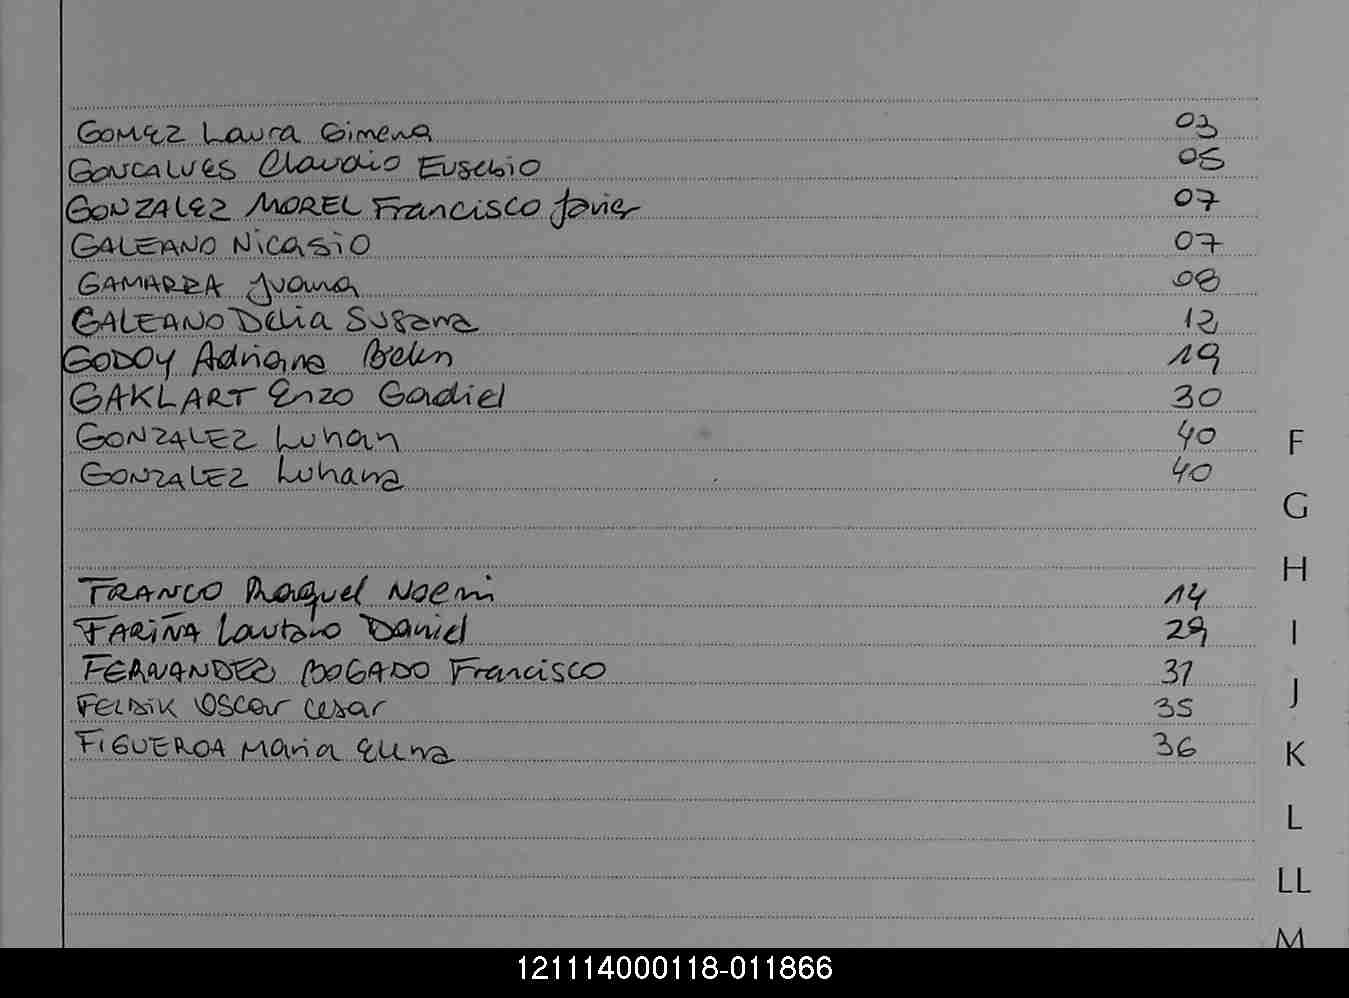 GOMEZ Laura Gimena 03
GONCALVES Claudio Eusebio 05
GONZALEZ MOREL Francisco Javier 07
GALEANO Nicasio 07
GAMARRA Juana 08
GALEANO Delia Susana 12
GODOY Adriana Belen 19
GAKLART Enzo Gadiel 30
GONZALEZ Luhan 40
GONZALEZ Luhana 40
FRANCO Raquel Noemi 14
FARIÑA Lautaro Daniel 29
FERNANDEZ BOGADO Francisco 31
Oscar Cesar 35
FIGUEROA Maria Elena 36
F
G
H
I
J
K
L
LL
M
121114000118-011866